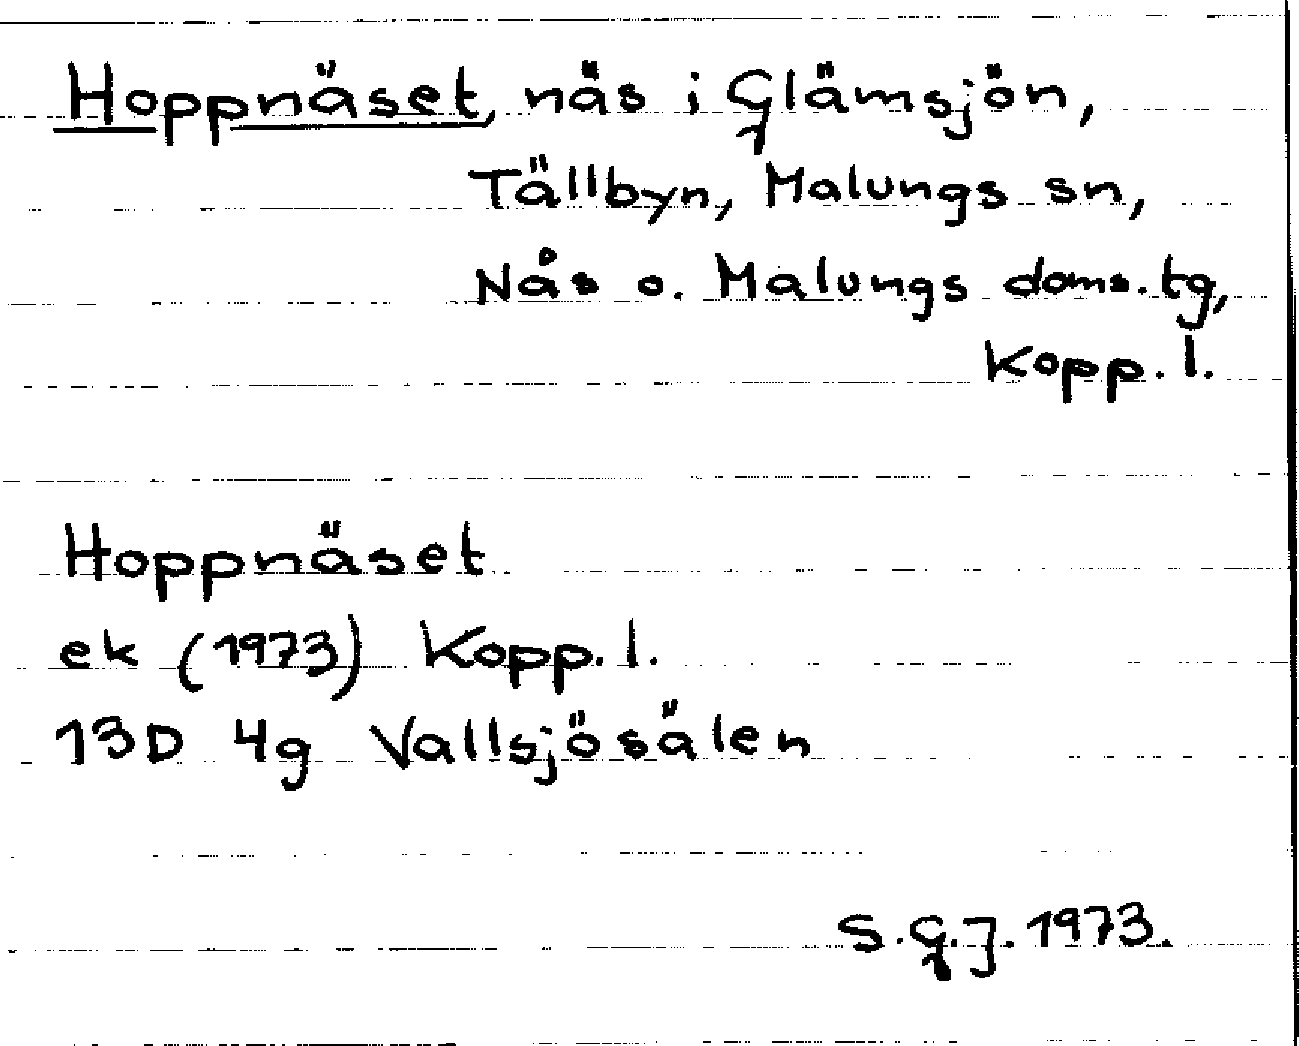 Hoppnäset, näs i Glämsjön,
Tällbyn, Malungs sn,
Nås o. Malungs doms.tg,
Kopp. l.
Hoppnäset
ek (1973) Kopp. l.
13D 4g Vallsjösälen
S.G.J. 1973.